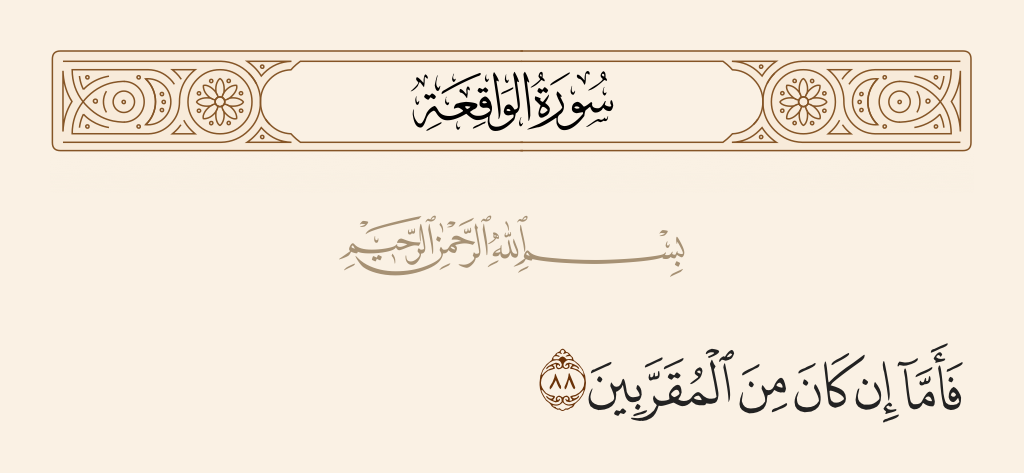 سُورَةُ الوَاقِعَةِ
بِسْمِ ٱللَّهِ ٱلرَّحْمَٰنِ ٱلرَّحِيمِ
فَأَمَّآ إِن كَانَ مِنَ ٱلْمُقَرَّبِينَ ٨٨